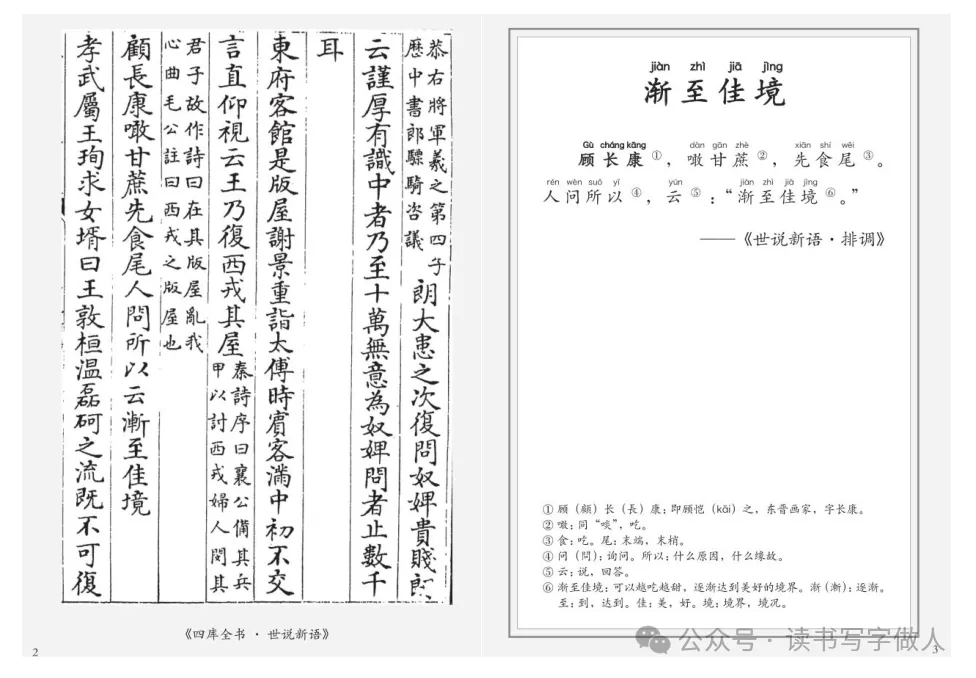 恭右將軍羲之第四子
歷中書郎驃騎咨議
朗大患之次復問奴婢貴賤郎
云謹厚有識中者乃至十萬無意為奴婢問者止數千
耳
東府客館是版屋謝景重詣太傅時賔客滿中初不交
言直仰視云王乃復西戎其屋
秦詩序曰襄公備其兵
甲以討西戎婦人閔其
君子故作詩曰在其版屋亂我
心曲毛公註曰西戎之版屋也
顧長康噉甘蔗先食尾人問所以云漸至佳境
孝武屬王珣求女壻曰王敦桓溫磊砢之流既不可復
《四库全书·世说新语》
2
jiàn zhì jiā jìng
渐至佳境
Gù cháng kāng dàn gān zhè xiān shí wěi
顾长康①，噉甘蔗②，先食尾③。
rén wèn suǒ yǐ yún jiàn zhì jiā jìng
人问所以④，云⑤：“渐至佳境⑥。”
——《世说新语·排调》
①顾（顧）长（長）康：即顾恺（kǎi）之，东晋画家，字长康。
②噉：同“啖”，吃。
③食：吃。尾：末端，末梢。
④问（問）：询问。所以：什么原因，什么缘故。
⑤云：说，回答。
⑥渐至佳境：可以越吃越甜，逐渐达到美好的境界。渐（漸）：逐渐。
至：到，达到。佳：美，好。境：境界，境况。
公众号·读书写字做人
3